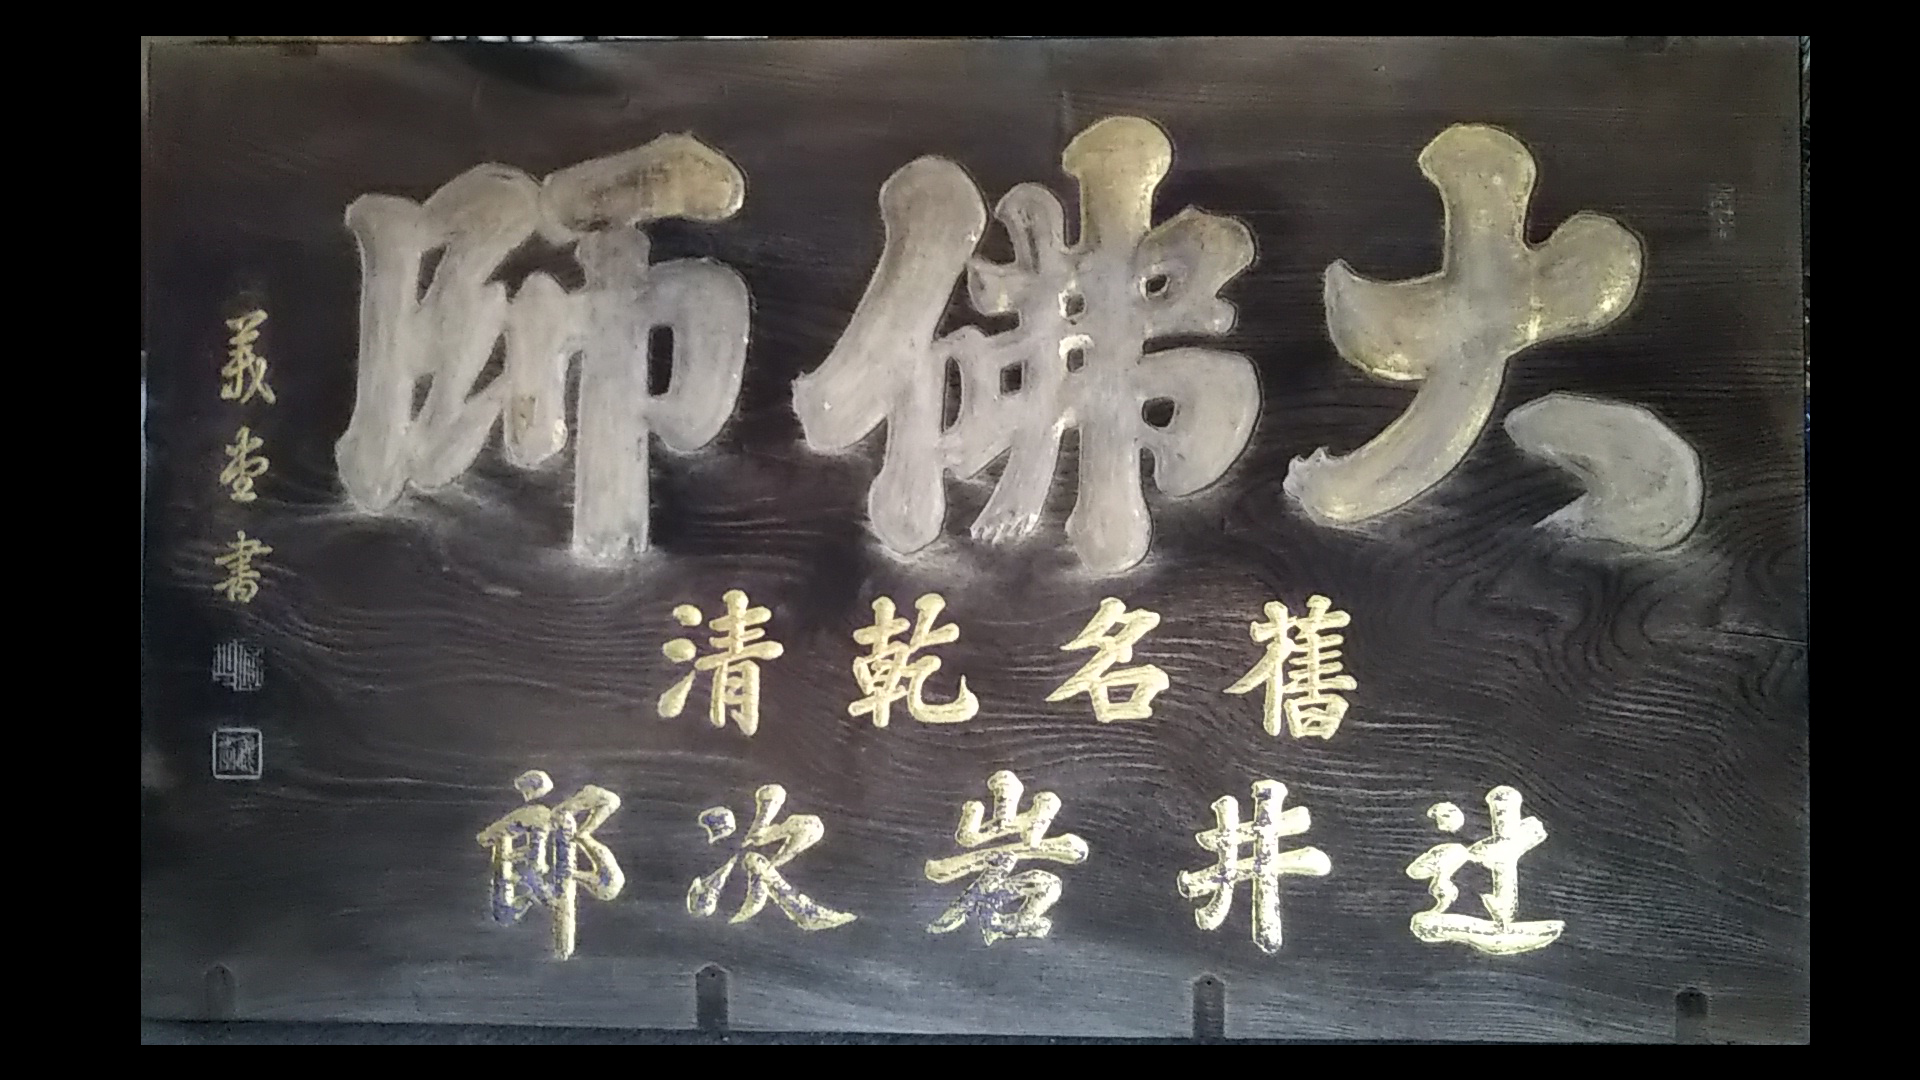 大佛師
舊名乾清
辻井岩次郎
義堂書